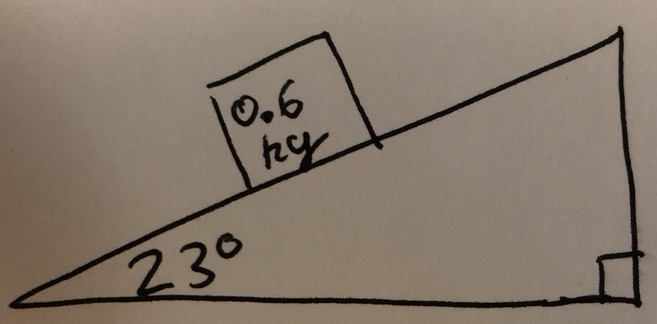 0.6
kg
23°